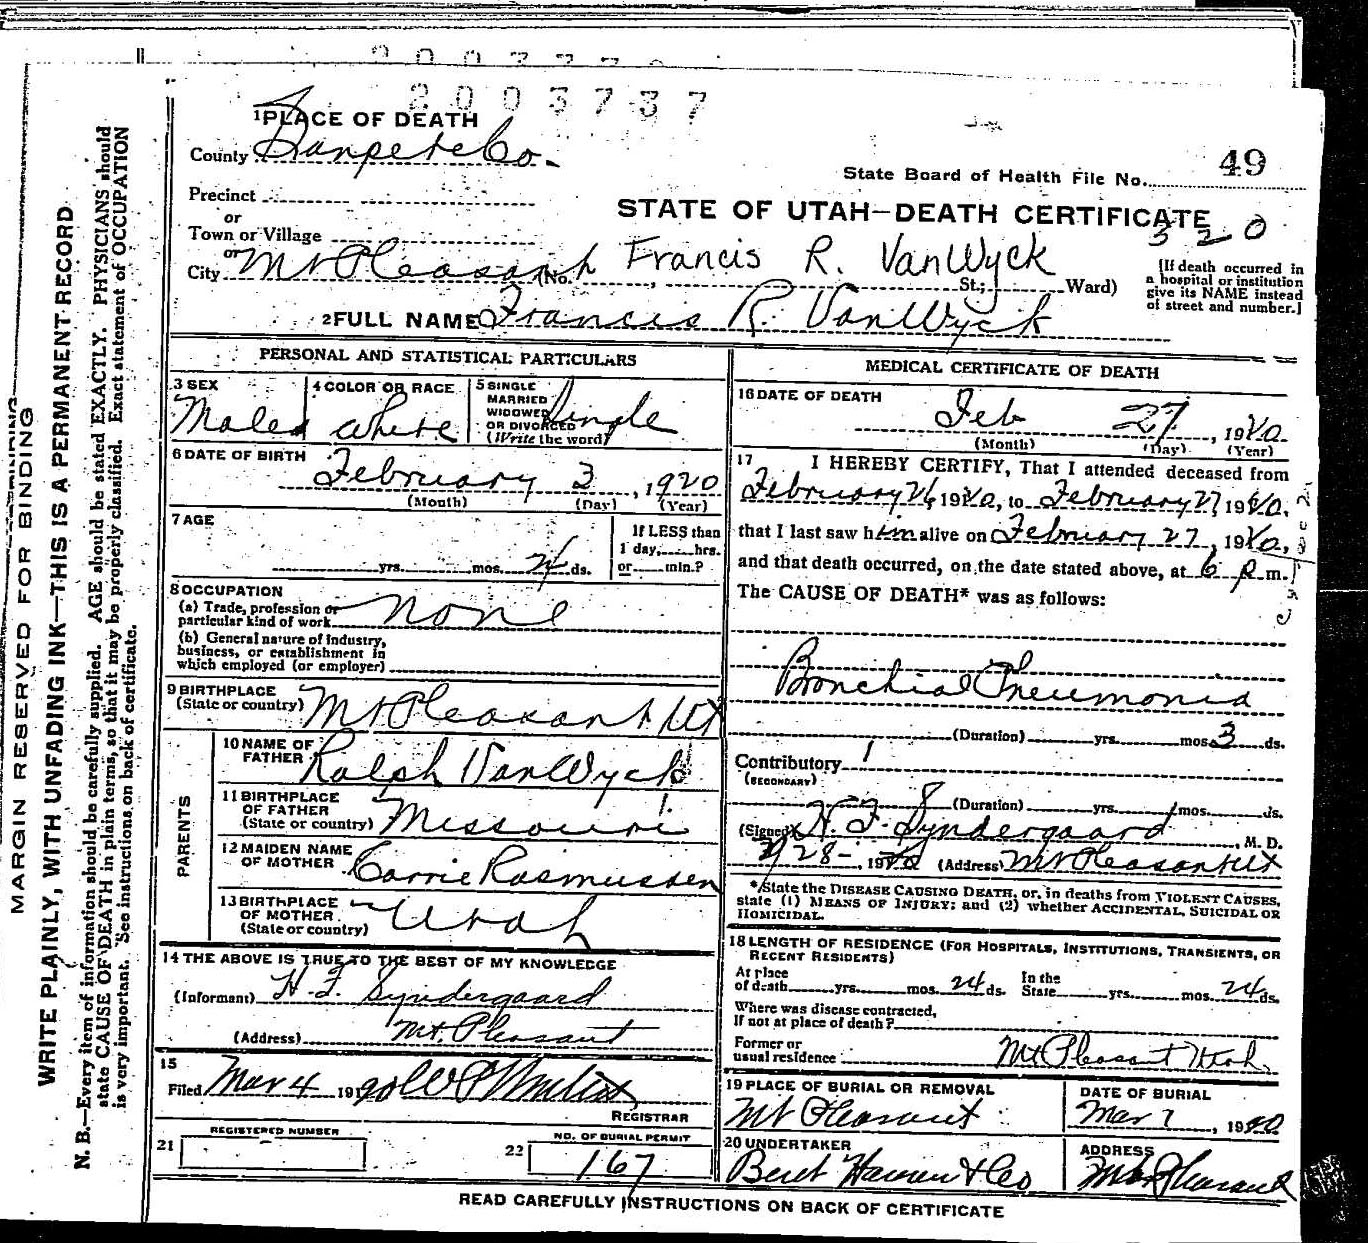 2003737
2003737
1 PLACE OF DEATH
County Sanpete Co.
State Board of Health File No. 49
Precinct
or
STATE OF UTAH—DEATH CERTIFICATE
320
Town or Village
or
City Mt Pleasant (No. , St.; Ward)
Francis R. VanWyck
[If death occurred in a hospital or institution give its NAME instead of street and number.]
2 FULL NAME Francis R. VanWyck
PERSONAL AND STATISTICAL PARTICULARS
3 SEX Male
4 COLOR OR RACE white
5 SINGLE MARRIED WIDOWED OR DIVORCED (Write the word) Single
6 DATE OF BIRTH February 3, 1920
(Month) (Day) (Year)
7 AGE yrs. mos. 24 ds.
If LESS than 1 day, hrs. or min.?
8 OCCUPATION
(a) Trade, profession or particular kind of work none
(b) General nature of industry, business, or establishment in which employed (or employer)
9 BIRTHPLACE (State or country) Mt Pleasant Ut
PARENTS
10 NAME OF FATHER Ralph VanWyck
11 BIRTHPLACE OF FATHER (State or country) Missouri
12 MAIDEN NAME OF MOTHER Carrie Rasmussen
13 BIRTHPLACE OF MOTHER (State or country) Utah
14 THE ABOVE IS TRUE TO THE BEST OF MY KNOWLEDGE
(Informant) H. F. Syndergaard
(Address) Mt. Pleasant
15
Filed Mar 4 1920
REGISTRAR
REGISTERED NUMBER
21
NO. OF BURIAL PERMIT
22 167
MEDICAL CERTIFICATE OF DEATH
16 DATE OF DEATH
Feb 27, 1920
(Month) (Day) (Year)
17 I HEREBY CERTIFY, That I attended deceased from
February 26 1920, to February 27 1920,
that I last saw him alive on February 27, 1920,
and that death occurred, on the date stated above, at 6 p m.
The CAUSE OF DEATH* was as follows:
Bronchial Pneumonia
(Duration) yrs. mos. 3 ds.
Contributory
(SECONDARY)
(Duration) yrs. mos. ds.
(Signed) H. F. Syndergaard, M. D.
2/28-, 1920 (Address) Mt Pleasant Ut
*State the DISEASE CAUSING DEATH, or, in deaths from VIOLENT CAUSES,
state (1) MEANS OF INJURY; and (2) whether ACCIDENTAL, SUICIDAL OR
HOMICIDAL.
18 LENGTH OF RESIDENCE (FOR HOSPITALS, INSTITUTIONS, TRANSIENTS, OR
RECENT RESIDENTS)
At place of death yrs. mos. 24 ds. In the State yrs. mos. 24 ds.
Where was disease contracted,
If not at place of death?
Former or
usual residence Mt Pleasant Utah.
19 PLACE OF BURIAL OR REMOVAL
Mt Pleasant
DATE OF BURIAL
Mar 1, 1920
20 UNDERTAKER
Bent Hansen & Co
ADDRESS
Mt Pleasant
READ CAREFULLY INSTRUCTIONS ON BACK OF CERTIFICATE
MARGIN RESERVED FOR BINDING
WRITE PLAINLY, WITH UNFADING INK—THIS IS A PERMANENT RECORD
N. B.—Every item of information should be carefully supplied. AGE should be stated EXACTLY. PHYSICIANS should
state CAUSE OF DEATH in plain terms, so that it may be properly classified. Exact statement of OCCUPATION
is very important. See instructions on back of certificate.